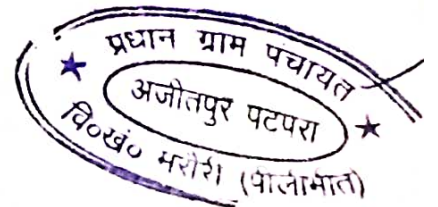 प्रधान ग्राम पंचायत
अजीतपुर पटपरा
वि०खं० मरौरी (पीलीभीत)